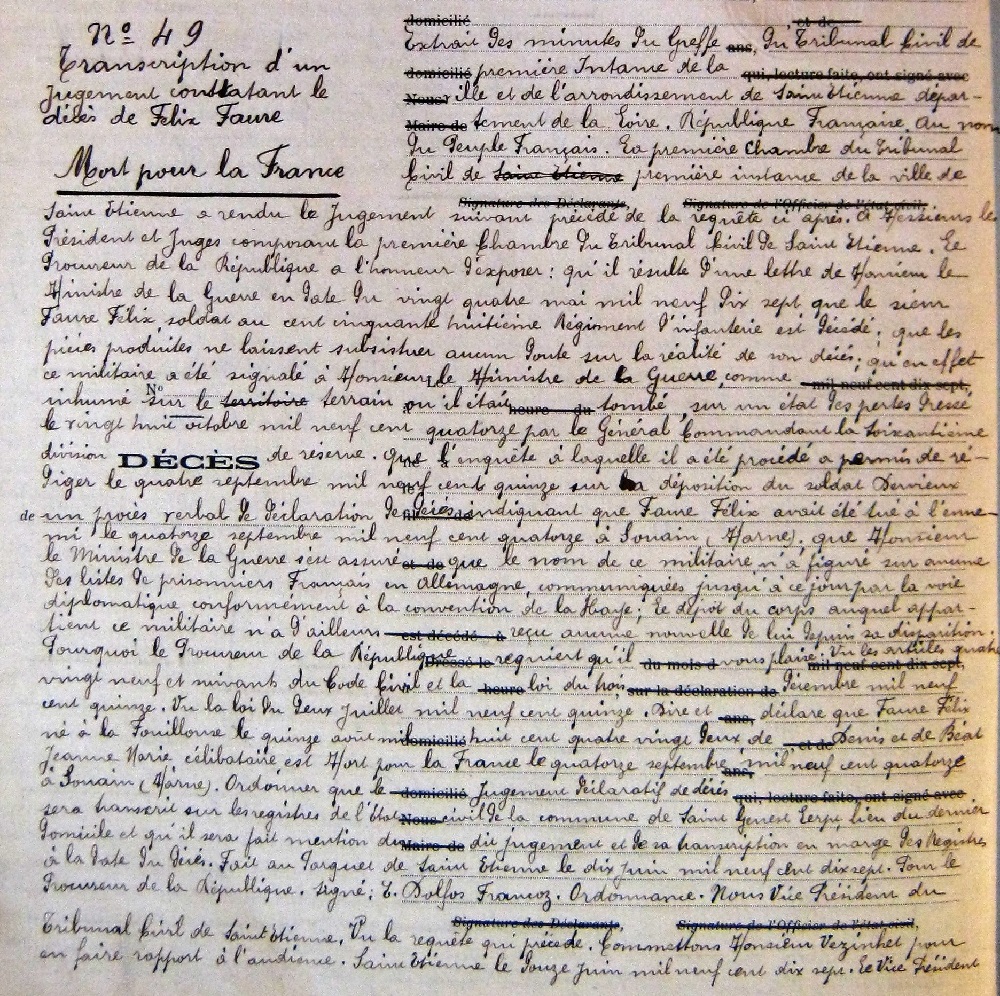 Nº 49
Transcription d'un
jugement constatant le
décès de Félix Faure
Mort pour la France
domicilié et de
Extrait des minutes du Greffe ans, du Tribunal Civil de
domicilié première Intance de la qui, lecture faite, ont signé avec
Nous ille et de l'arrondissement de Saint Etienne dépar-
Maire de tement de la Loire. République Française. Au nom
du Peuple Français. La première Chambre du Tribunal
Civil de Saint Etienne première instance de la ville de
Signature des Déclarants, Signature de l'Officier de l'état civil,
Saint Etienne a rendu le Jugement suivant précédé de la requête ci après. A Messieurs les
Président et Juges composant la première Chambre du Tribunal Civil de Saint Etienne. Le
Procureur de la République a l'honneur d'exposer: qu'il résulte d'une lettre de Monsieur le
Ministre de la Guerre en date du vingt quatre mai mil neuf dix sept que le sieur
Faure Félix, soldat au cent cinquante huitième Régiment d'infanterie est décédé; que les
pièces produites ne laissent subsister aucun doute sur la réalité de son décès; qu'en effet
ce militaire a été signalé à Monsieur le Ministre de la Guerre, comme mil neuf cent dix sept,
Nº
inhumé sur le territoire terrain où il était heure du tombé, sur un état des pertes dressé
le vingt huit octobre mil neuf cent quatorze par le Général Commandant la soixantième
division DÉCÈS de réserve. Que l'enquête à laquelle il a été procédé a permis de ré-
diger le quatre septembre mil neuf cent quinze sur la déposition du soldat Dervieux
de un procès verbal de déclaration de décès indiquant que Faure Félix avait été tué à l'enne-
mi le quatorze septembre mil neuf cent quatorze à Souain (Marne), que Monsieur
le Ministre de la Guerre s'est assuré et de que le nom de ce militaire n'a figuré sur aucune
des listes de prisonniers Français en Allemagne, communiquées jusqu'à ce jour par la voie
diplomatique conformément à la convention de la Haye; Le dépôt du corps auquel appar-
tient ce militaire n'a d'ailleurs est décédé à reçu aucune nouvelle de lui depuis sa disparition.
Pourquoi le Procureur de la République Dressé le requiert qu'il du mois d vous plaise: Vu les articles quatre
mil neuf cent dix sept,
vingt neuf et suivants du Code Civil et la heure loi du trois sur la déclaration de décembre mil neuf
cent quinze. Vu la loi du deux juillet mil neuf cent quinze. Dire et ans, déclare que Faure Félix
né à la Fouillouse le quinze août mil domicilié huit cent quatre vingt deux de et de Denis et de Béal
Jeanne Marie célibataire est Mort pour la France le quatorze septembre ans, mil neuf cent quatorze
à Souain (Marne). Ordonner que le domicilié Jugement déclaratif de décès qui, lecture faite, ont signé avec
sera transcrit sur les registres de l'état Nous civil de la commune de Saint Genest Lerpt, lieu du dernier
domicile et qu'il sera fait mention du Maire de dit jugement et de sa transcription en marge des Registres
à la date du décès. Fait au Parquet de Saint Etienne le dix juin mil neuf cent dix sept. Pour le
Procureur de la République. signé: E. Dolfos Francoz. Ordonnance. Nous Vice Président du
Signature des Déclarants, Signature de l'Officier de l'état civil,
Tribunal Civil de Saint Etienne, Vu la requête qui précède. Commettons Monsieur Vezinhet pour
en faire rapport à l'audience. Saint Etienne le douze juin mil neuf cent dix sept. Le Vice Président